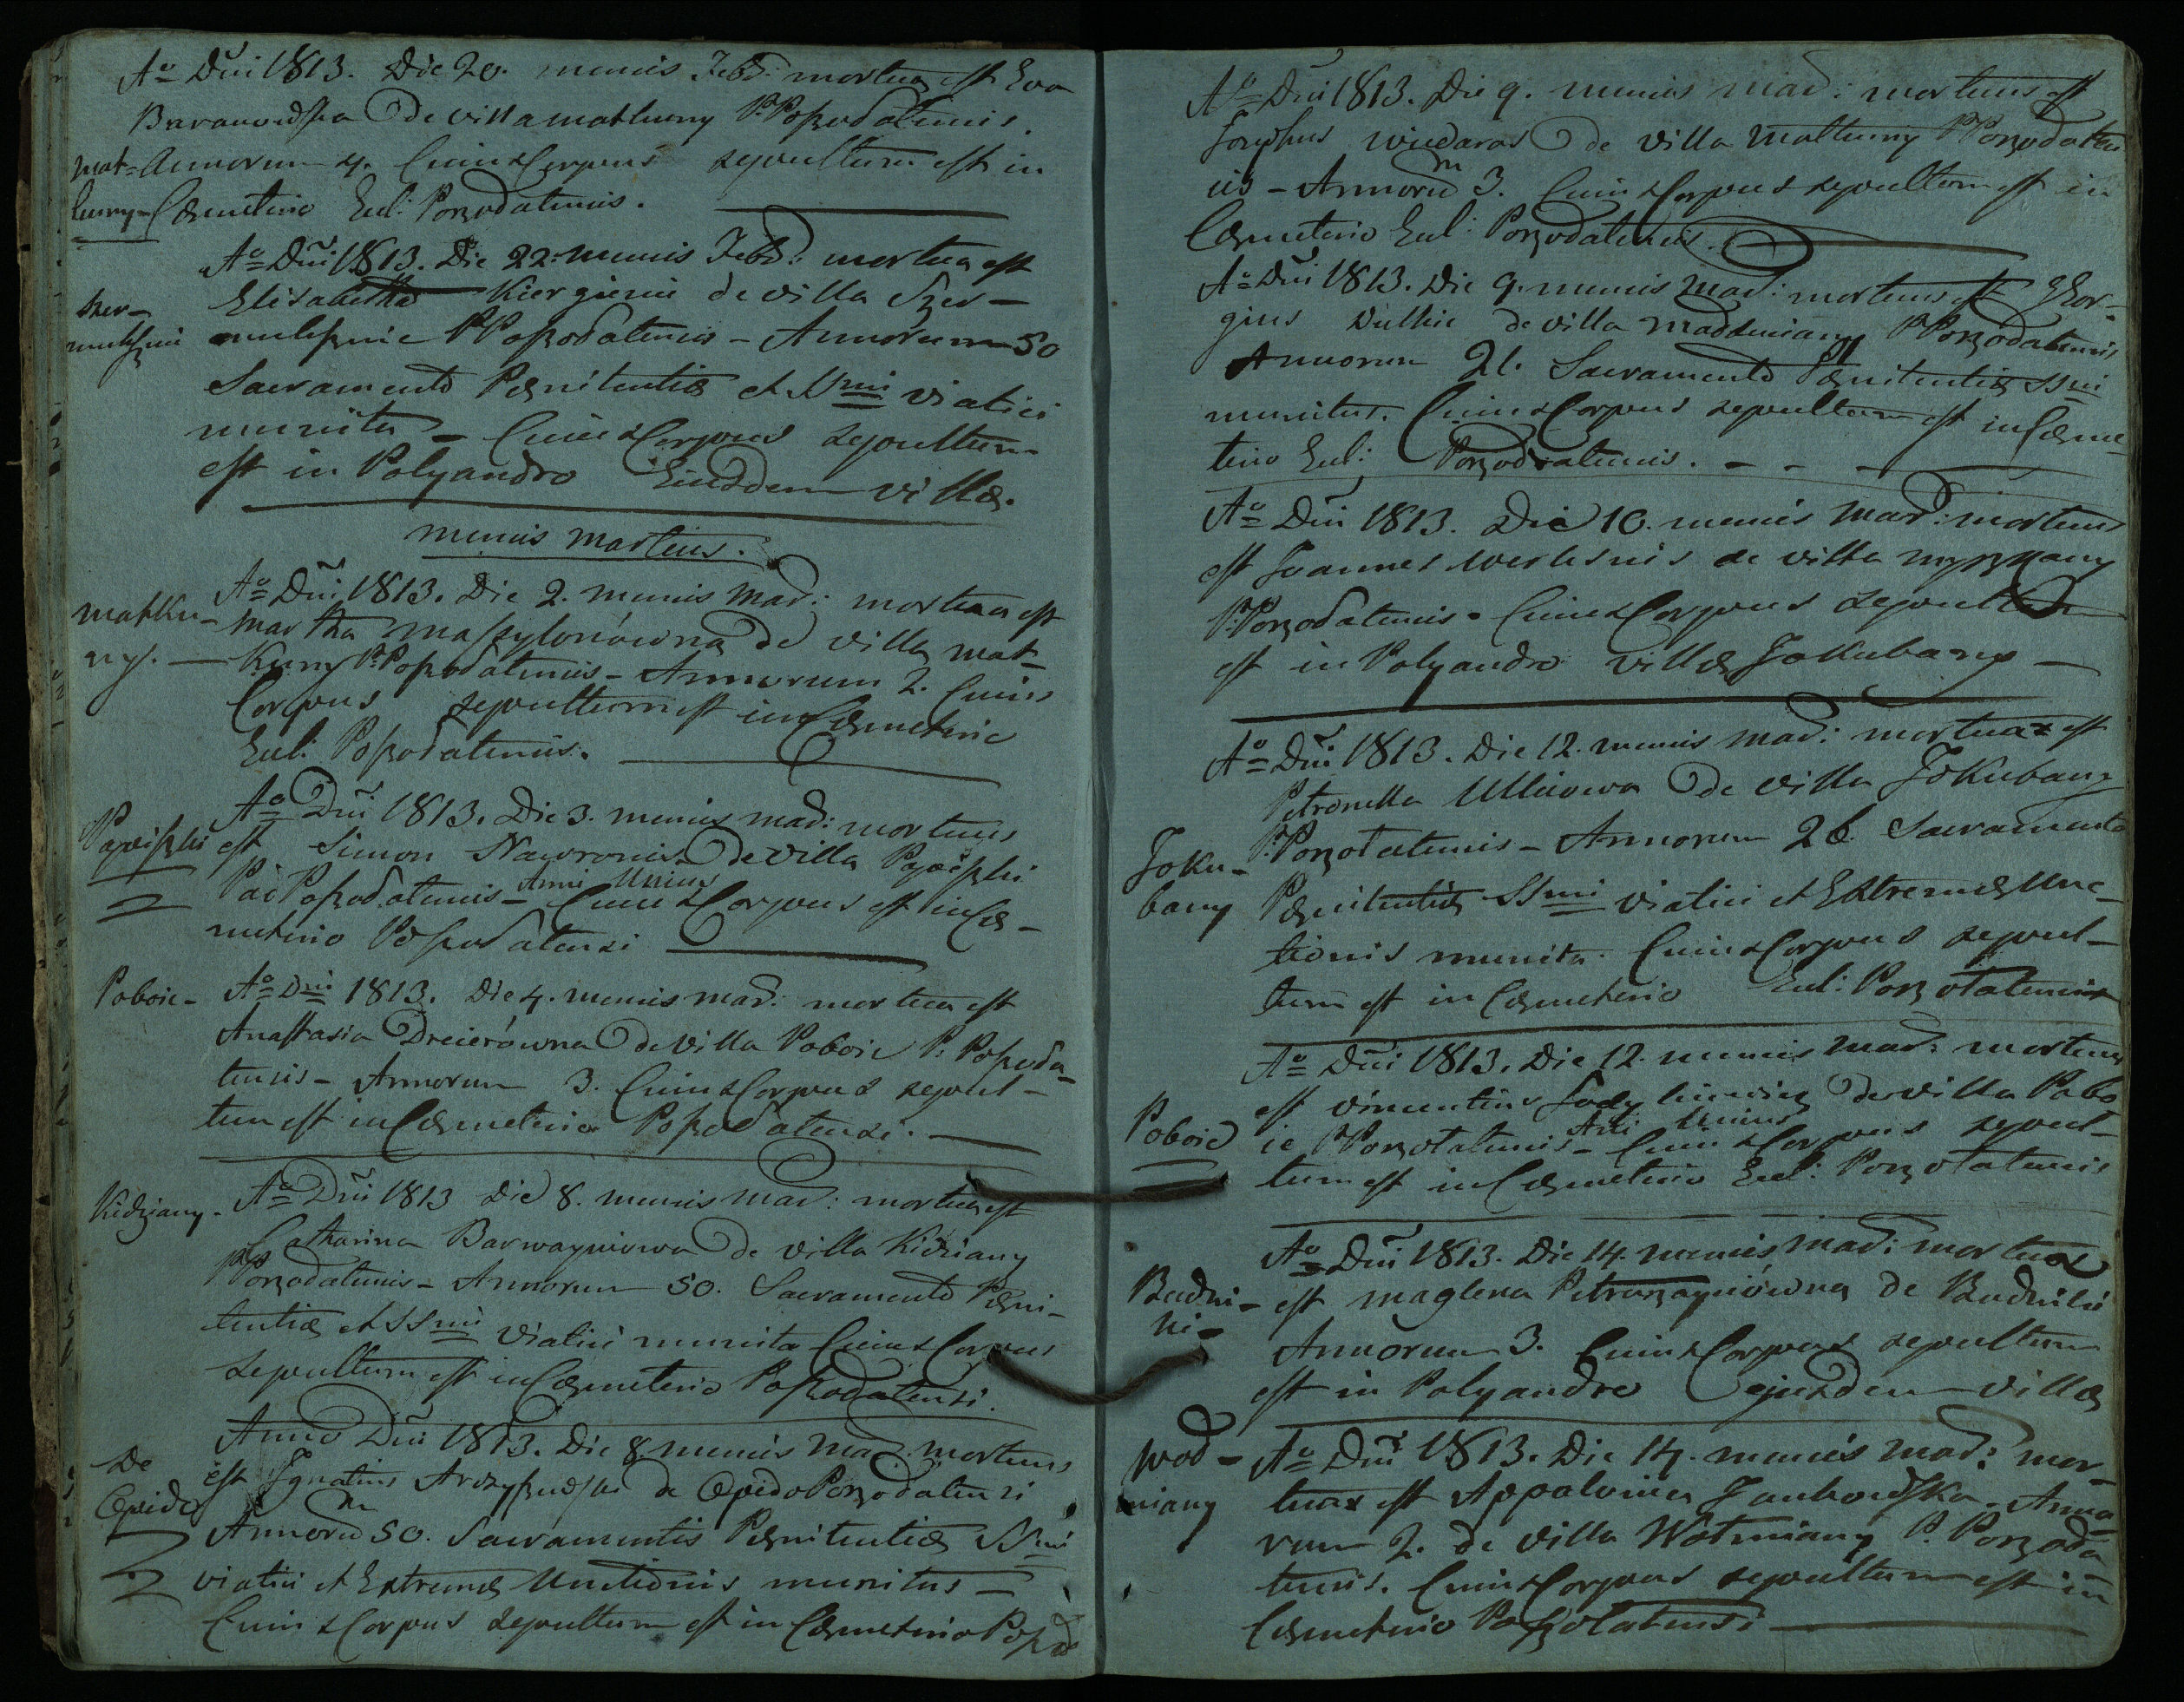 Aº Dni 1813. Die 20. mensis Febr: mortua est Eva
Baranowska de villa Matkuny P. Poszodatensis.
Mat= Annorum 4. Cuius Corpus sepultum est in
kuny Cœmeterio Eccl: Porzodatensis.
Aº Dni 1813. Die 22. mensis Febr: mortua est
Elisabetha Kiergienie de villa Szer-
Szer- muksznie P Poszodatensis - Annorum 50
mukszni
Sacramento Pœnitentiæ et SSmi viatici
munita - Cuius Corpus sepultum
est in Polyandro Eiusdem villæ.
mensis Martius.
Aº Dni 1813. Die 2. mensis Mar: mortua est
Matku- Martha de villa Mat-
ny. - kuny P. Poszodatensis - Annorum 2. Cuius
Corpus sepultum est in Cœmeterio
Eccl: Poszodatensis.
Aº Dni 1813. Die 3. mensis Mar: mortuus
est Simon Nawronis de villa
Par Poszodatensis - Anni Unius Cuius Corpus est in Cœ-
meterio Poszodatensi
Poboie - Aº Dni 1813. Die 4. mensis Mar: mortua est
Anastasia Dreierówna de Villa Poboie P. Poszoda-
tensis - Annorum 3. Cuius Corpus sepul-
tum est in Cœmeterio Poszodatensi.
Kidziany - Aº Dni 1813 Die 8. mensis Mar: mortua est
Catharina de villa Kidziany
P Porzodatensis - Annorum 50. Sacramento Pœni-
tentiæ et SSmi Viatici munita Cuius Corpus
sepultum est in Cœmeterio Poszodatensi.
Anno Dni 1813. Die 8. mensis Mar: mortuus
De est Ignatius de Opido Porzodatensi
Opido
Annorum 50. Sacramentis Pœnitentiæ SSmi
viatici et Extremæ Unctionis munitus -
Cuius Corpus sepultum est in Cœmeterio Poszod
Aº Dni 1813. Die 9. mensis Mar: mortuus est
Josephus de villa Matkuny P Porzodaten
is - Annorum 3. Cuius Corpus sepultum est in
Cœmeterio Eccl: Porzodatensis.
Aº Dni 1813. Die 9. mensis Mar: mortuus est Geor-
gius de villa P Porzodatensis
Annorum 21. Sacramento Pœnitentiæ SSmi
munitus. Cuius Corpus sepultum est in Cœme-
terio Eccl: Porzodatensis. - - -
Aº Dni 1813. Die 10. mensis Mar: mortuus
est Joannes de villa
P. Porzodatensis. Cuius Corpus sepultum
est in Polyandro villæ Jokubany -
Aº Dni 1813. Die 12. mensis Mar: mortua est
Petronella de villa Jokubany
Joku- P. Porzodatensis - Annorum 26. Sacramento
bany Pœnitentiæ SSmi Viatici et Extremæ Unc-
tionis munita. Cuius Corpus sepul-
tum est in Cœmeterio Eccl: Porzodatensis
Aº Dni 1813. Die 12. mensis Mar: mortuus
est Vincentius de villa Pobo
Poboie ie P Porzodatensis - Ani Unius Cuius Corpus sepul-
tum est in Cœmeterio Eccl: Porzodatensis
Aº Dni 1813. Die 14. mensis Mar: mortua
Budni- est Maglena de Budniki
ki -
Annorum 3. Cuius Corpus sepultum
est in Polyandro ejusdem villæ
Wod- Aº Dni 1813. Die 14. mensis Mar: mor-
miany tua est Appalonia Jankowska. Anno-
rum 2. de villa Wotmiany P. Porzoda-
tensis. Cuius Corpus sepultum est in
Cœmeterio Poszodatensi